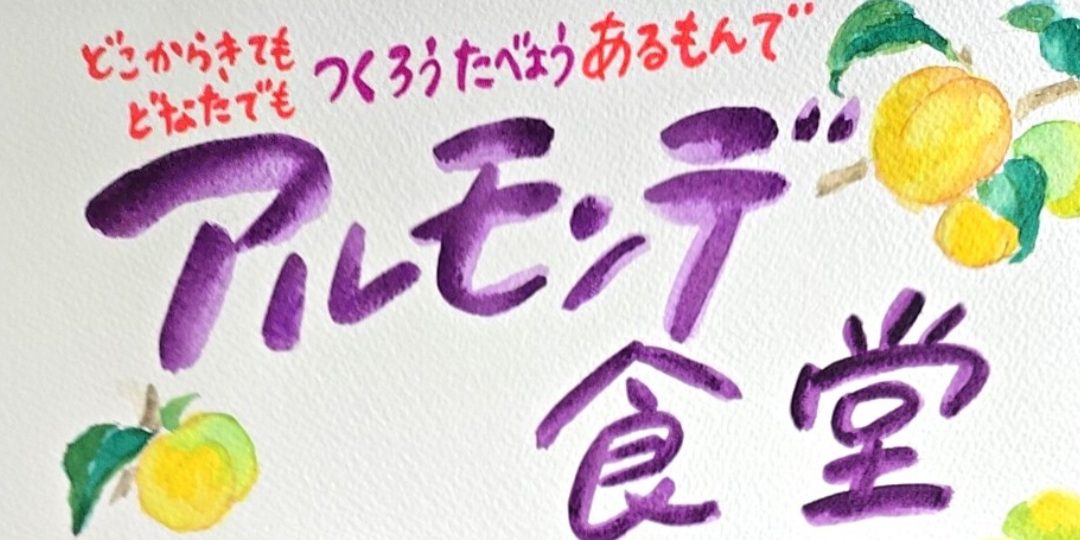 どこからきても
どなたでも
つくろうたべようあるもんで
アルモンデ
食堂